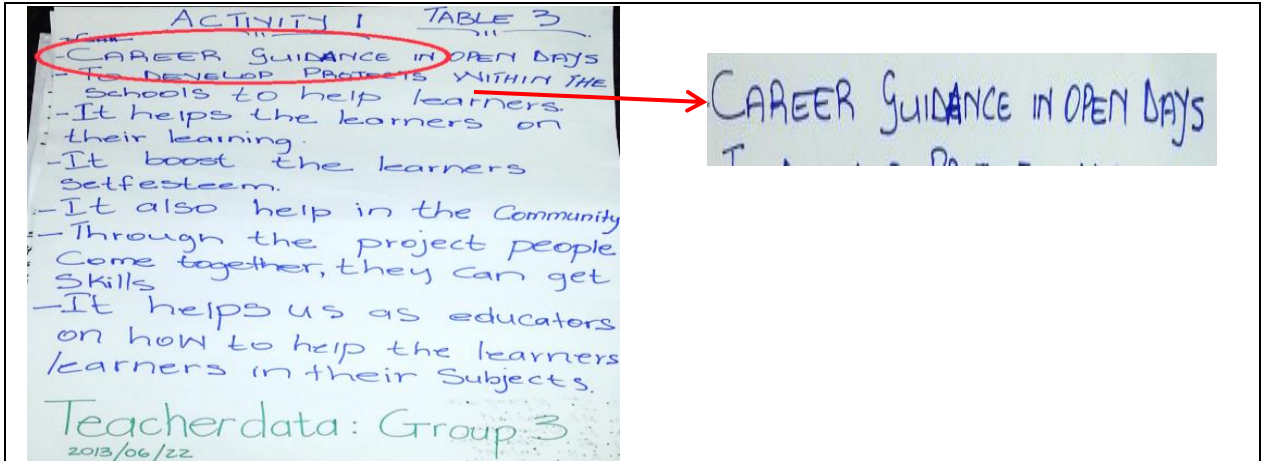 ACTIVITY 1 TABLE 3
- CAREER GUIDANCE IN OPEN DAYS
- TO DEVELOP PROTECTS WITHIN THE
schools to help learners.
- It helps the learners on
their learning.
- It boost the learners
setfesteem.
- It also help in the Community
- Through the project people
Come together, they can get
Skills
- It helps us as educators
on how to help the learners
learners in their Subjects.
Teacherdata: Group 3
2013/06/22
CAREER GUIDANCE IN OPEN DAYS